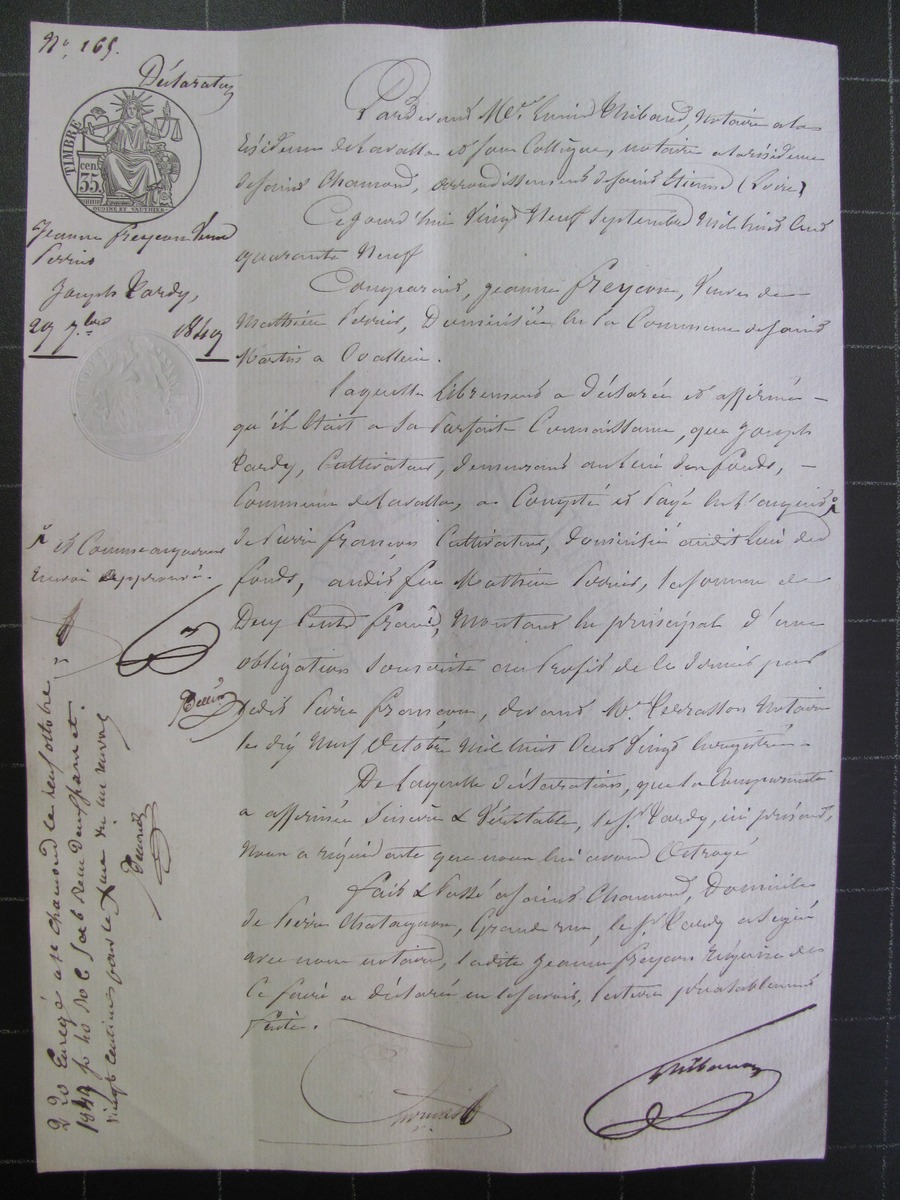 No. 165.
Déclaration
TIMBRE
35 cen.
OUDINÉ ET GAUTHIER
Jeanne Freycon Veuve
Perrin
Joseph Tardy,
29 7.bre 1849
Pardevant Me. Thibaud, Notaire à la
résidence de Lavalla et son Collègue, notaire à la résidence
de saint Chamond, arrondissement de saint Etienne (Loire)
Ce jourd'hui Vingt Neuf septembre mil huit cent
quarante Neuf
Comparait, Jeanne freycon, Veuve de
Mathieu Perrin, Domiciliée en la Commune de saint
Martin a Coallieu.
laquelle librement a déclaré et affirmé
qu'il était a sa parfaite Connaissance, que Joseph
Tardy, Cultivateur, demeurant au lieu des fonds,
Commune de Lavalla, a Compté et payé
de Pierre françois Cultivateur, domicilié audit Lieu des
fonds, audit feu Mathieu Perrin, la somme de
Deux Cents francs, Montant en principal d'une
obligation souscrite au Profit de ce dernier par
ledit Pierre , devant Me. Notaire
le dix Neuf Octobre Mil huit Cent Vingt Enregistrée
De laquelle déclaration, que la Comparante
a affirmée Sincère & Véritable, le Sr. Tardy, ici présent,
Nous a requis acte que nous lui avons Octroyé
fait & Passé a saint Chamond, Domicile
de Pierre Chataignon, Grande rue, le Sr. Tardy a signé
avec nous notaires, ladite Jeanne freycon Requise de
Ce faire a déclaré ne le savoir, lecture préalablement
faite.
et Comme
renvoi approuvé.
Enregé a st chamond le neuf octobre
1849 fo ro C reçu deux francs
vingt centimes pour le dixme
Thibaud